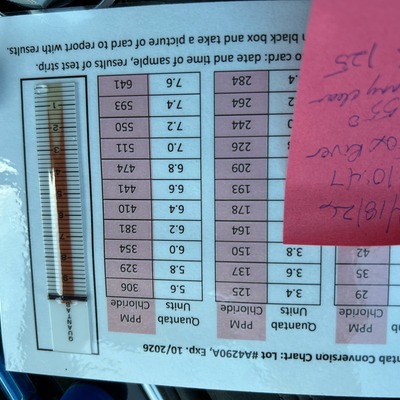 ntab Conversion Chart: Lot #A4290A, Exp. 10/2026
tab PPM Quantab PPM Quantab PPM
Chloride Units Chloride Units Chloride
29 3.4 125 5.6 306
35 3.6 137 5.8 329
42 3.8 150 6.0 354
164 6.2 381
178 6.4 410
193 6.6 441
209 6.8 474
226 7.0 511
0 244 7.2 550
2 264 7.4 593
.4 284 7.6 641
o card: date and time of sample, results of test strip.
n black box and take a picture of card to report with results.
/18/24
10:47
ox River
550
clear
125
QUANTAB
9
8
7
6
5
4
3
2
1